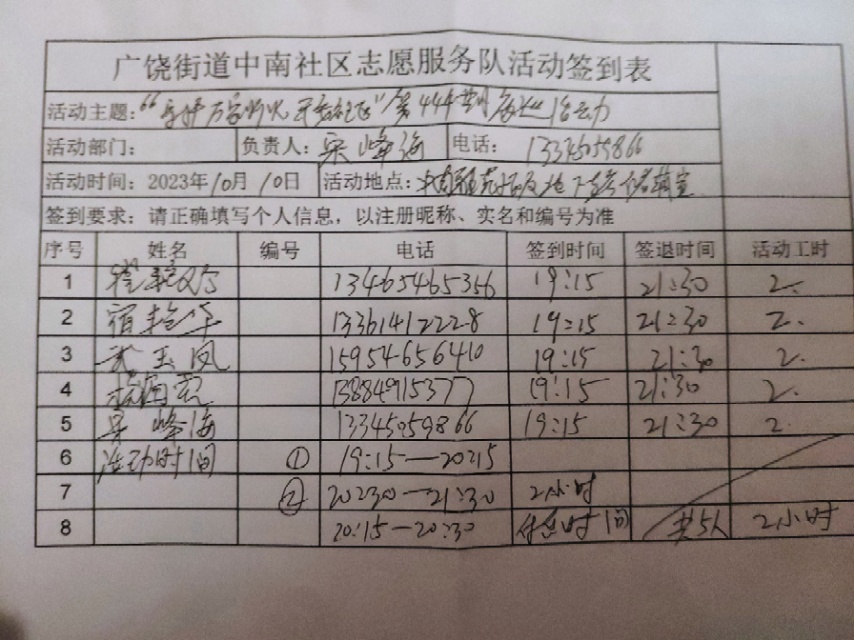 广饶街道中南社区志愿服务队活动签到表
活动主题：“ 万家 ”第444期
活动部门： 负责人：宋峰海 电话：13345059866
活动时间：2023年10月10日 活动地点：中南 地下
签到要求：请正确填写个人信息，以注册昵称、实名和编号为准
序号 姓名 编号 电话 签到时间 签退时间 活动工时
1 13465465356 19:15 21:30 2.
2 宿艳华 13361412228 19:15 21:30 2.
3 武玉凤 15954656410 19:15 21:30 2.
4 13884915377 19:15 21:30 2.
5 宋峰海 13345059866 19:15 21:30 2
6 活动时间 ① 19:15—2015
7 ② 2030—21:30 2小时
8 20:15—20:30 休息时间 共5人 2小时